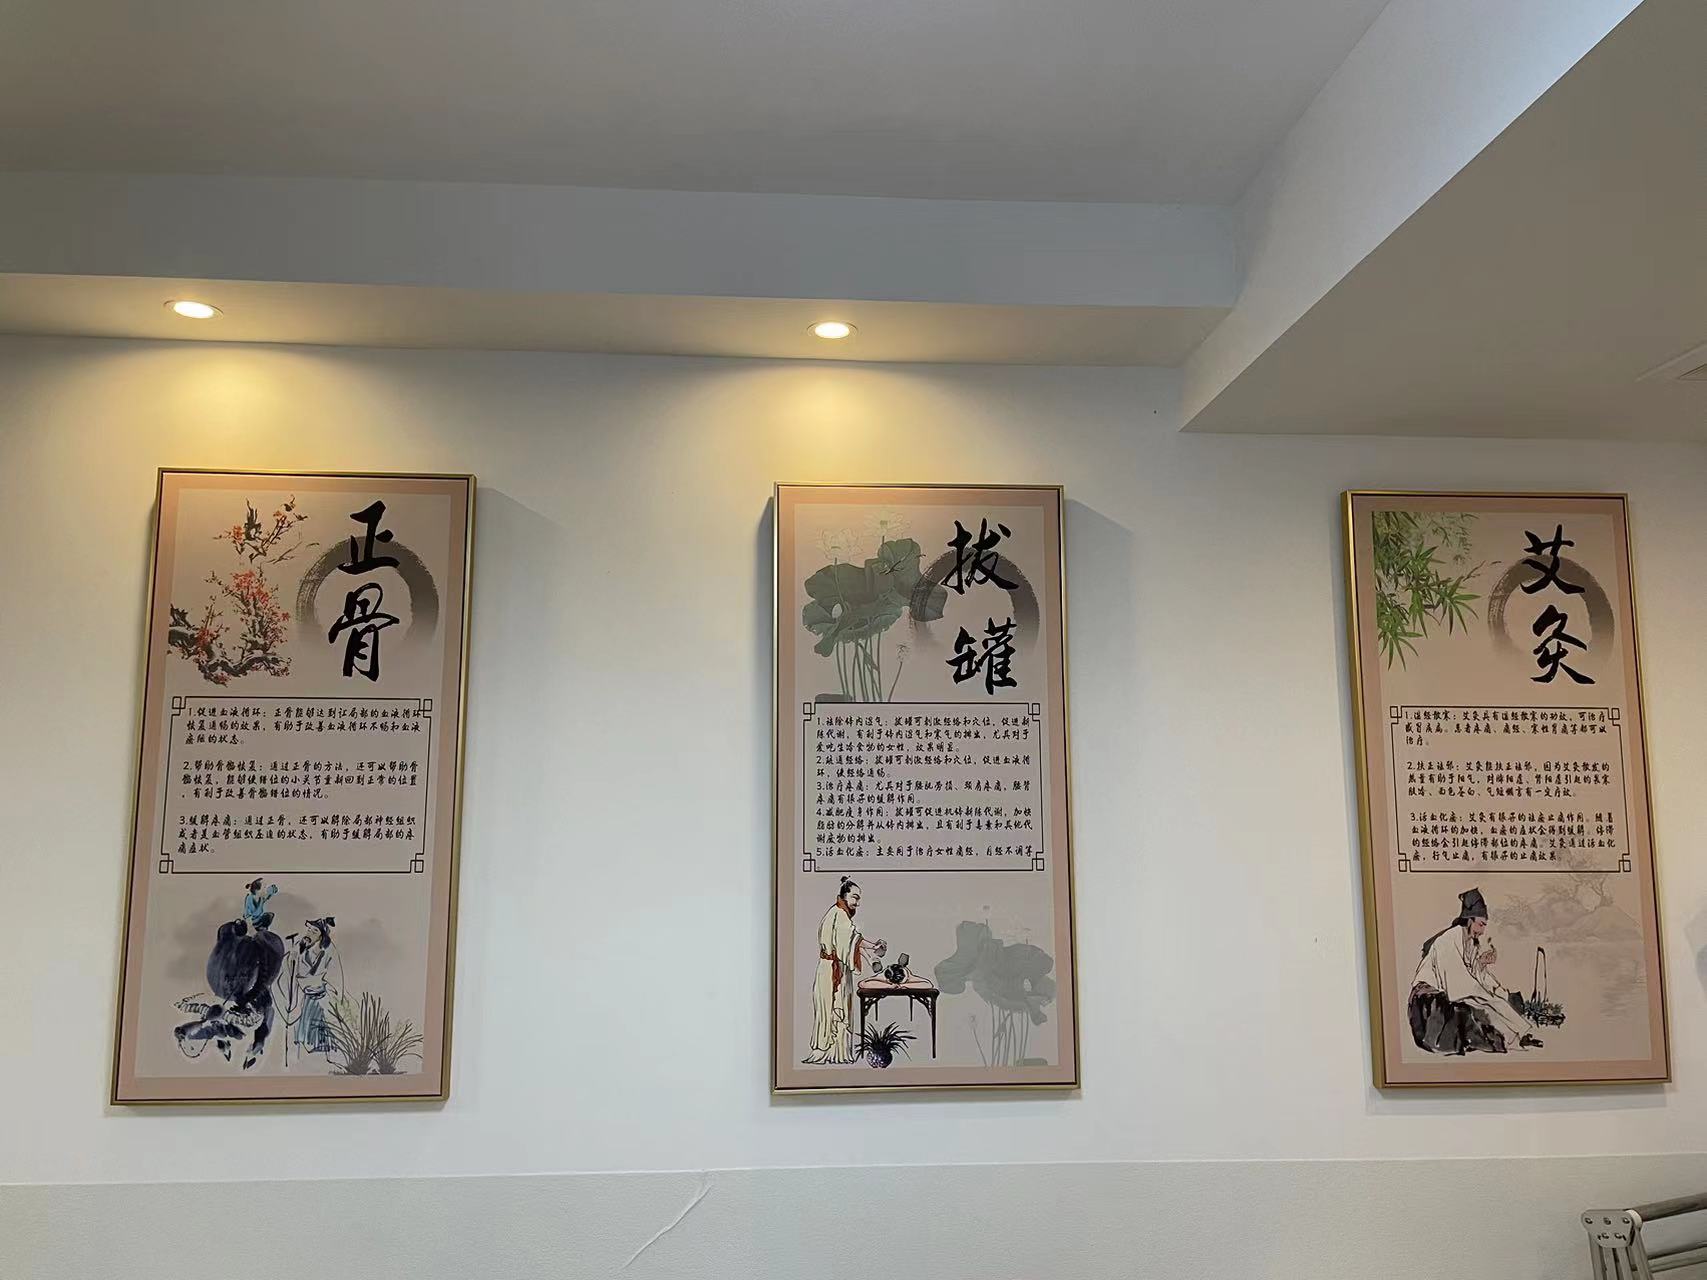 正
骨
1.促进血液循环：正骨能够达到让局部的血液循环
恢复通畅的效果，有助于改善血液循环不畅和血液
瘀阻的状态。
2.帮助骨骼恢复：通过正骨的方法，还可以帮助骨
骼恢复，能够使错位的小关节重新回到正常的位置
，有利于改善骨骼错位的情况。
3.缓解疼痛：通过正骨，还可以解除局部神经组织
或者是血管组织压迫的状态，有助于缓解局部的疼
痛症状。
拔
罐
1.祛除体内湿气：拔罐可刺激经络和穴位，促进新
陈代谢，有利于体内湿气和寒气的排出，尤其对于
爱吃生冷食物的女性，效果明显。
2.疏通经络：拔罐可刺激经络和穴位，促进血液循
环，使经络通畅。
3.治疗疼痛：尤其对于腰肌劳损、颈肩疼痛，腰背
疼痛有很好的缓解作用。
4.减肥瘦身作用：拔罐可促进机体新陈代谢，加快
脂肪的分解并从体内排出，且有利于毒素和其他代
谢废物的排出。
5.活血化瘀：主要用于治疗女性痛经，月经不调等
。
艾
灸
1.温经散寒：艾灸具有温经散寒的功效，可治疗
感冒疾病。患者疼痛、痛经、寒性胃痛等都可以
治疗。
2.扶正祛邪：艾灸能扶正祛邪，因为艾灸散发的
热量有助于阳气，对脾阳虚、肾阳虚引起的畏寒
肢冷、面色苍白、气短懒言有一定疗效。
3.活血化瘀：艾灸有很好的祛瘀止痛作用。随着
血液循环的加快，血瘀的症状会得到缓解。停滞
的经络会引起停滞部位的疼痛。艾灸通过活血化
瘀，行气止痛，有很好的止痛效果。